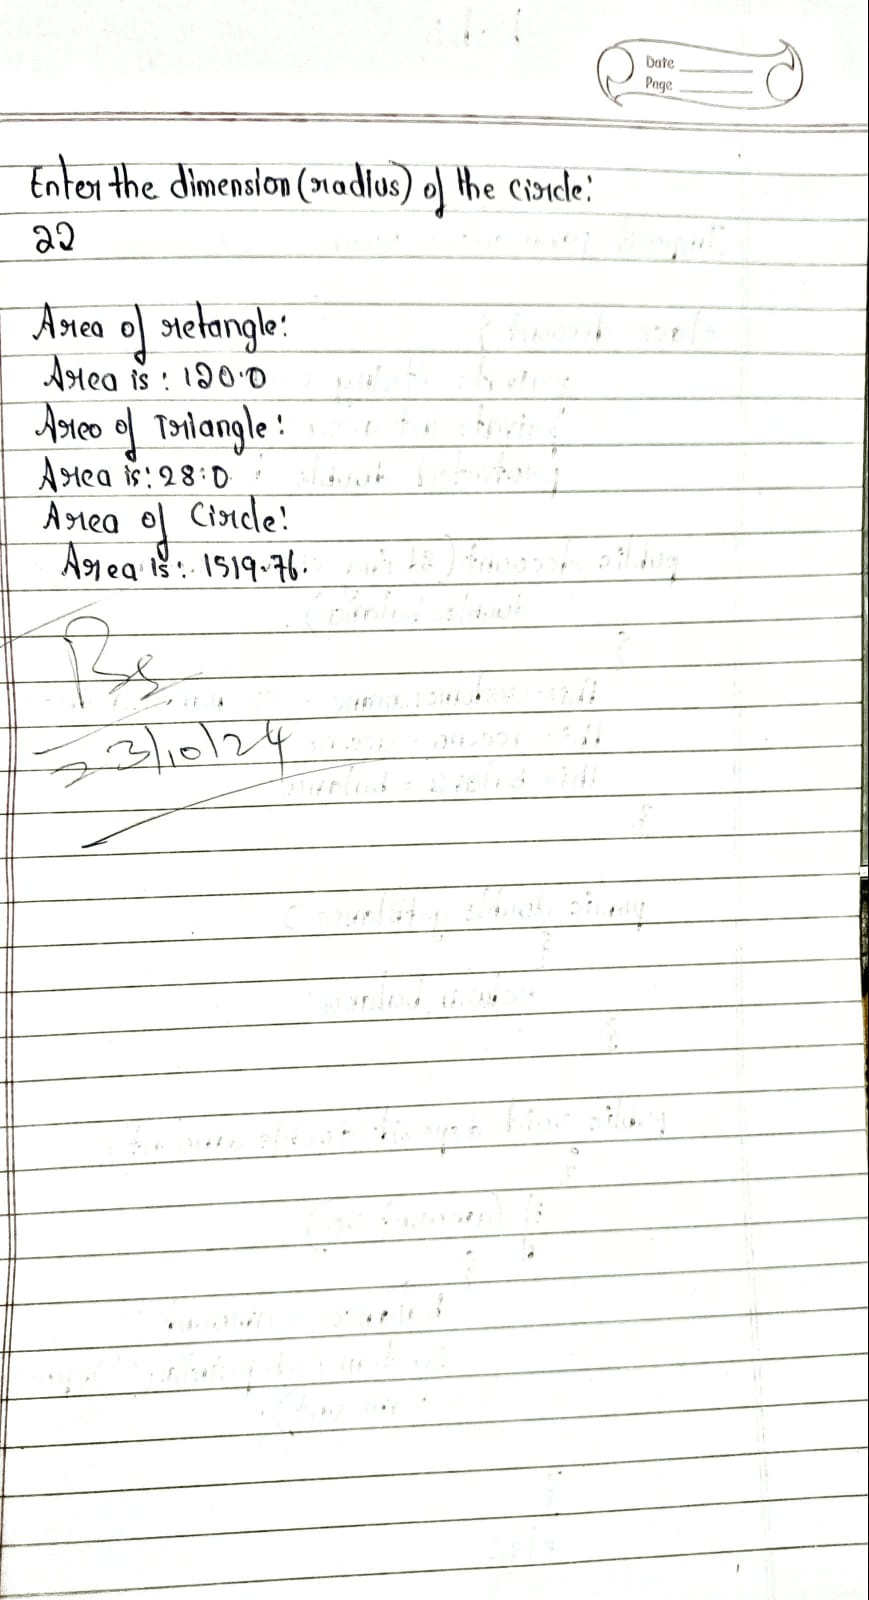 Date
Page
Enter the dimension (radius) of the circle:
22
Area of retangle:
Area is : 120.0
Area of Triangle:
Area is: 28.0
Area of Circle:
Area is: 1519.76.
23/10/24